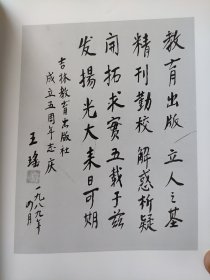 教育出版 立人之基
精刊勤校 解惑析疑
开拓求实 五载于兹
发揚光大 来日可期
吉林教育出版社
成立五周年志庆
王瑶
一九八九年